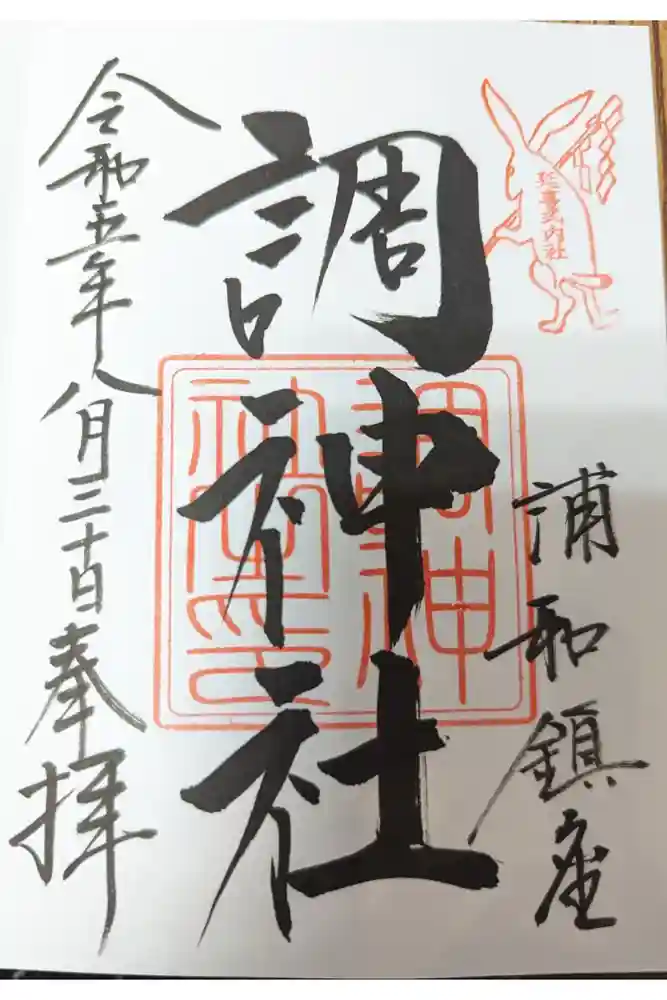 延喜式内社
浦和鎮座
調神社
調神社之印
令和五年八月三十日奉拝